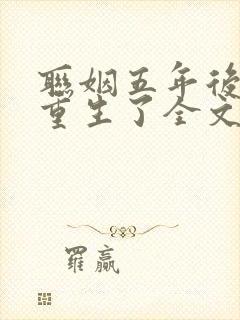 聯姻五年後
重生了全文
羅贏